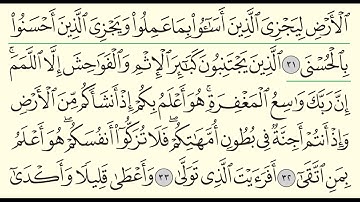 ٱلْأَرْضِ لِيَجْزِىَ ٱلَّذِينَ أَسَـٰٓـُٔوا۟ بِمَا عَمِلُوا۟ وَيَجْزِىَ ٱلَّذِينَ أَحْسَنُوا۟
بِٱلْحُسْنَى ٣١ ٱلَّذِينَ يَجْتَنِبُونَ كَبَـٰٓئِرَ ٱلْإِثْمِ وَٱلْفَوَٰحِشَ إِلَّا ٱللَّمَمَ ۚ
إِنَّ رَبَّكَ وَٰسِعُ ٱلْمَغْفِرَةِ ۚ هُوَ أَعْلَمُ بِكُمْ إِذْ أَنشَأَكُم مِّنَ ٱلْأَرْضِ
وَإِذْ أَنتُمْ أَجِنَّةٌ فِى بُطُونِ أُمَّهَـٰتِكُمْ ۖ فَلَا تُزَكُّوٓا۟ أَنفُسَكُمْ ۖ هُوَ أَعْلَمُ
بِمَنِ ٱتَّقَىٰٓ ٣٢ أَفَرَءَيْتَ ٱلَّذِى تَوَلَّىٰ ٣٣ وَأَعْطَىٰ قَلِيلًا وَأَكْدَىٰٓ